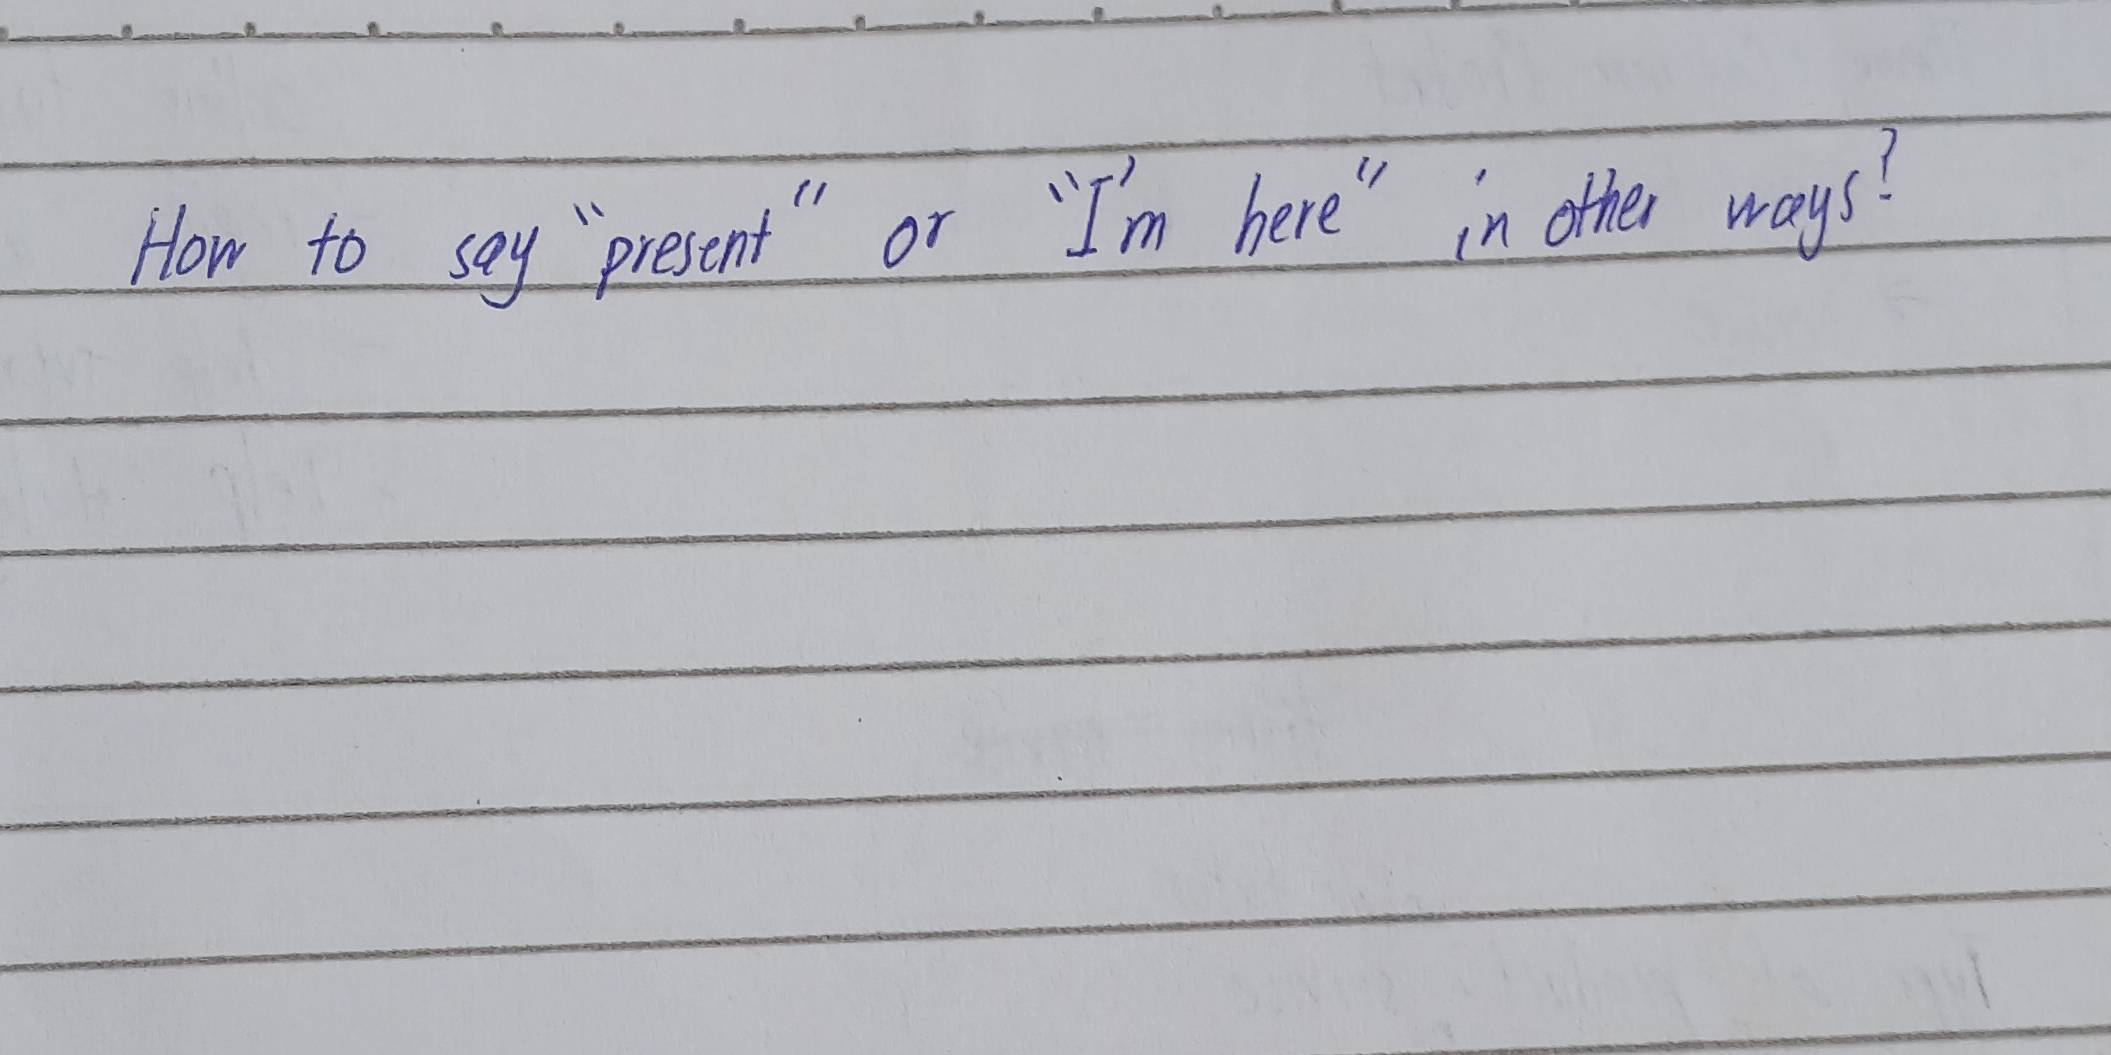 How to say "present" or "I'm here" in other ways?